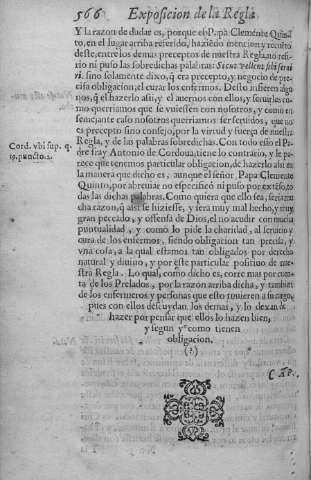 566 Exposicion de la Regla
Y la razon de dudar es, porque el P. pà Clemente Quin
to, en el lugar arriba referido, haziẽdo mencion y recuẽto
deste, entre los demas preceptos de nuestra Regla, no refi-
rio ni puso las sobredichas palabras: Sicut vellent sibi serui
ri. sino solamente dixo, q̃ era precepto, y negocio de pre-
cisa obligacion, el curar los enfermos. Desto infieren algu
nos, q̃ el hazerlo assi, y el auernos con ellos, y seruirles co-
mo querriamos que se vuiessen con nosotros, y como en
semejante caso nosotros querriamos ser seruidos, que no
es precepto sino consejo, por la virtud y fuerça de nuestra
Regla, y de las palabras sobredichas. Con todo esso el Pa
Cord. vbi sup. q.
19. puncto. 2.
dre fray Antonio de Cordoua, tiene lo contrario, y le pa-
rece que tenemos particular obligacion, de hazerlo assi en
la manera que dicho es, aunque el señor Papa Clemente
Quinto, por abreuiar no especificò ni puso por extẽso, to-
das las dichas palabras. Como quiera que ello sea, seria mu
cha razon, q̃ assi se hiziesse, y sera muy mal hecho, y muy
gran peccado, y offensa de Dios, el no acudir con mucha
puntualidad, y como lo pide la charidad, al seruicio y
cura de los enfermos, siendo obligacion tan precisa, y
vna cosa, a la qual estamos tan obligados por derecho
natural y diuino, y por este particular positiuo de nue-
stra Regla. Lo qual, como dicho es, corre mas por cuen-
ta de los Prelados, por la razon arriba dicha, y tambien
de los enfermeros y personas que esto tuuieren a su cargo,
pues con ellos descuydan los demas, y lo dexan de
hazer por pensar que ellos lo hazen bien,
y segun y como tienen
obligacion.
(?)